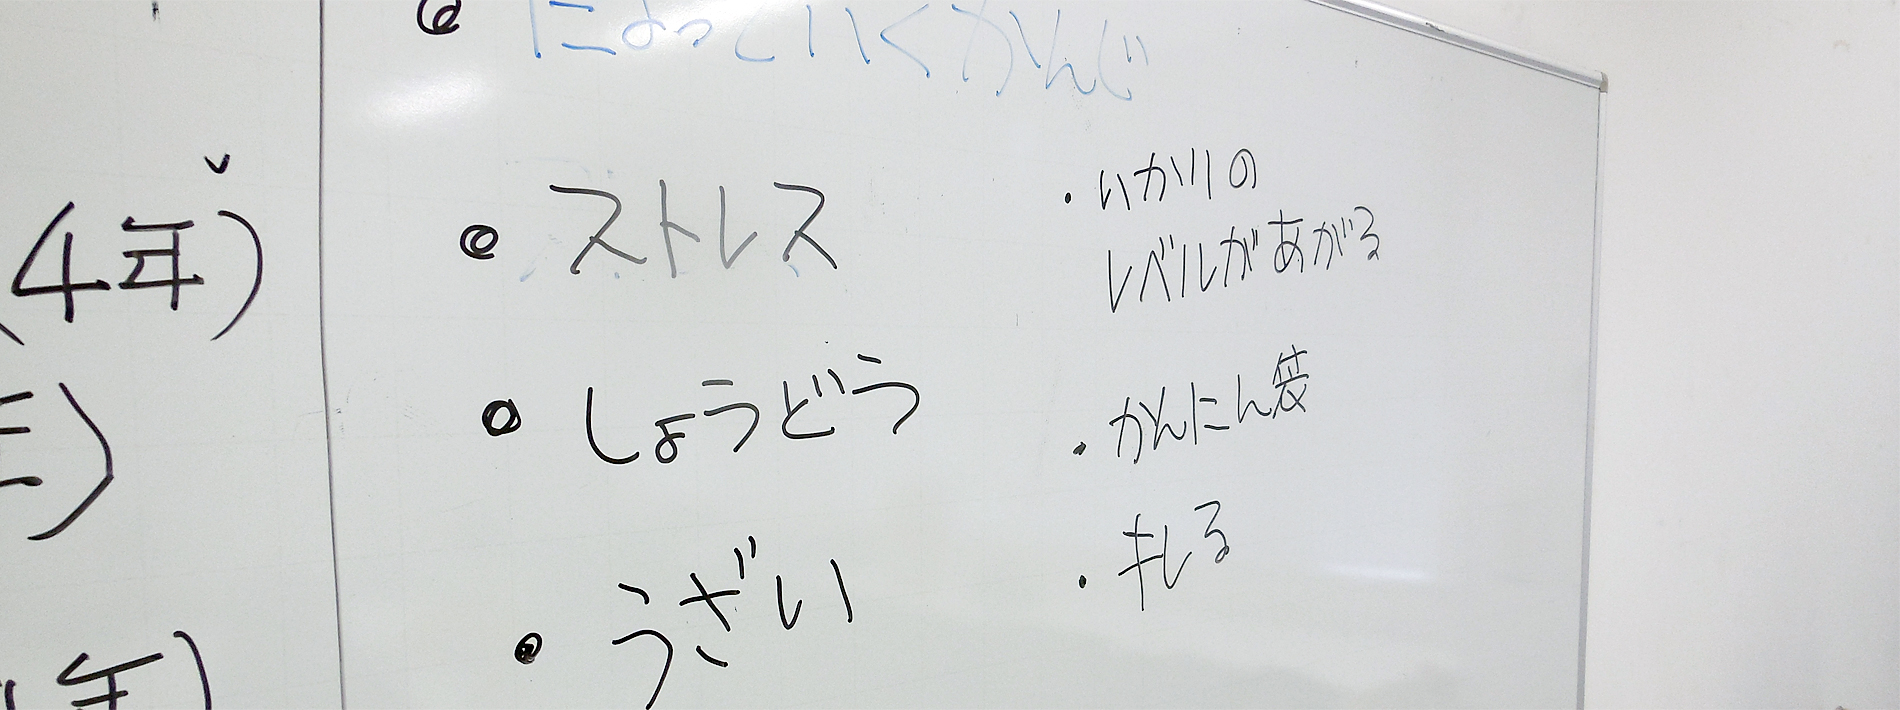 によっていくかんじ
(4年)
ストレス
しょうどう
うざい
年)
・いかりの
レベルがあがる
・かんにん袋
・キレる